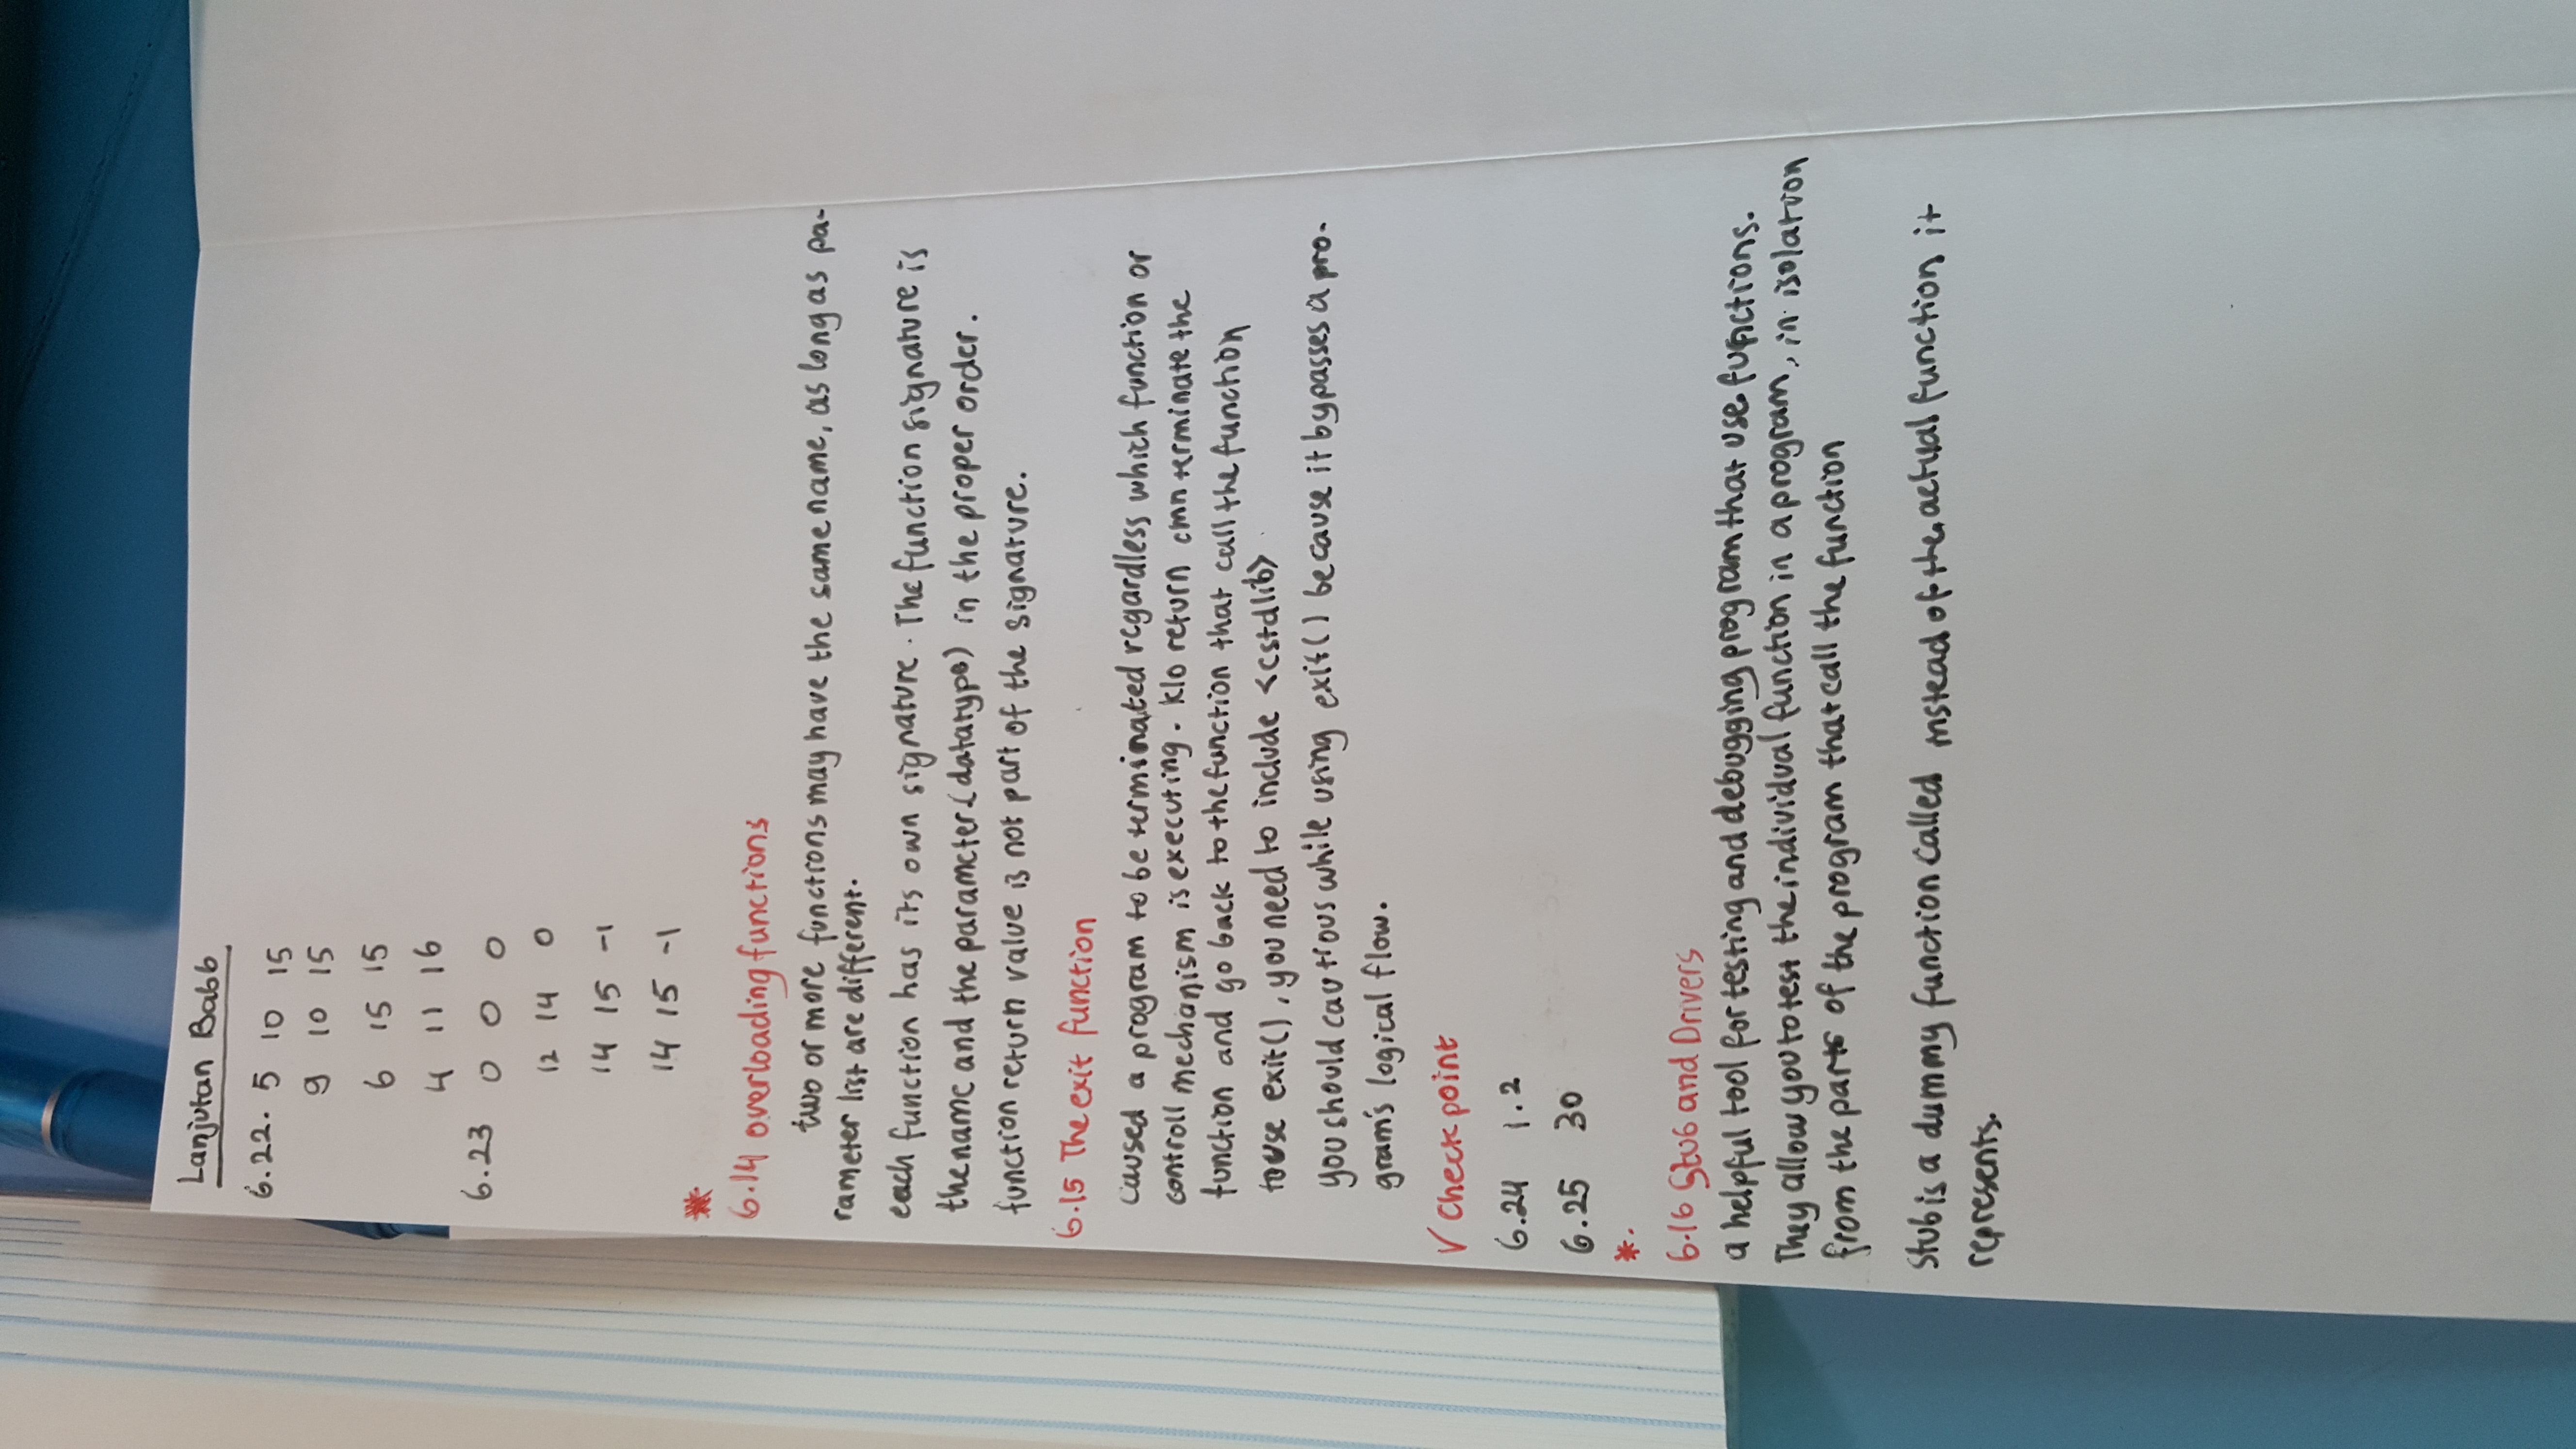 Lanjutan Bab 6
6.22. 5 10 15
9 10 15
6 15 15
4 11 16
6.23 0 0 0
12 14 0
14 15 -1
14 15 -1
*
6.14 overloading functions
two or more functions may have the same name, as long as pa-
rameter list are different.
each function has its own signature. The function signature is
the name and the parameter (datatype) in the proper order.
function return value is not part of the signature.
6.15 The exit function
caused a program to be terminated regardless which function or
controll mechanism is executing. klo return cmn terminate the
function and go back to the function that call the function
to use exit(), you need to include <cstdlib>
you should cautious while using exit() because it bypasses a pro-
gram's logical flow.
√ Checkpoint
6.24 1.2
6.25 30
*.
6.16 Stub and Drivers
a helpful tool for testing and debugging program that use functions.
They allow you to test the individual function in a program, in isolation
from the parts of the program that call the function
Stub is a dummy function called instead of the actual function it
represents.